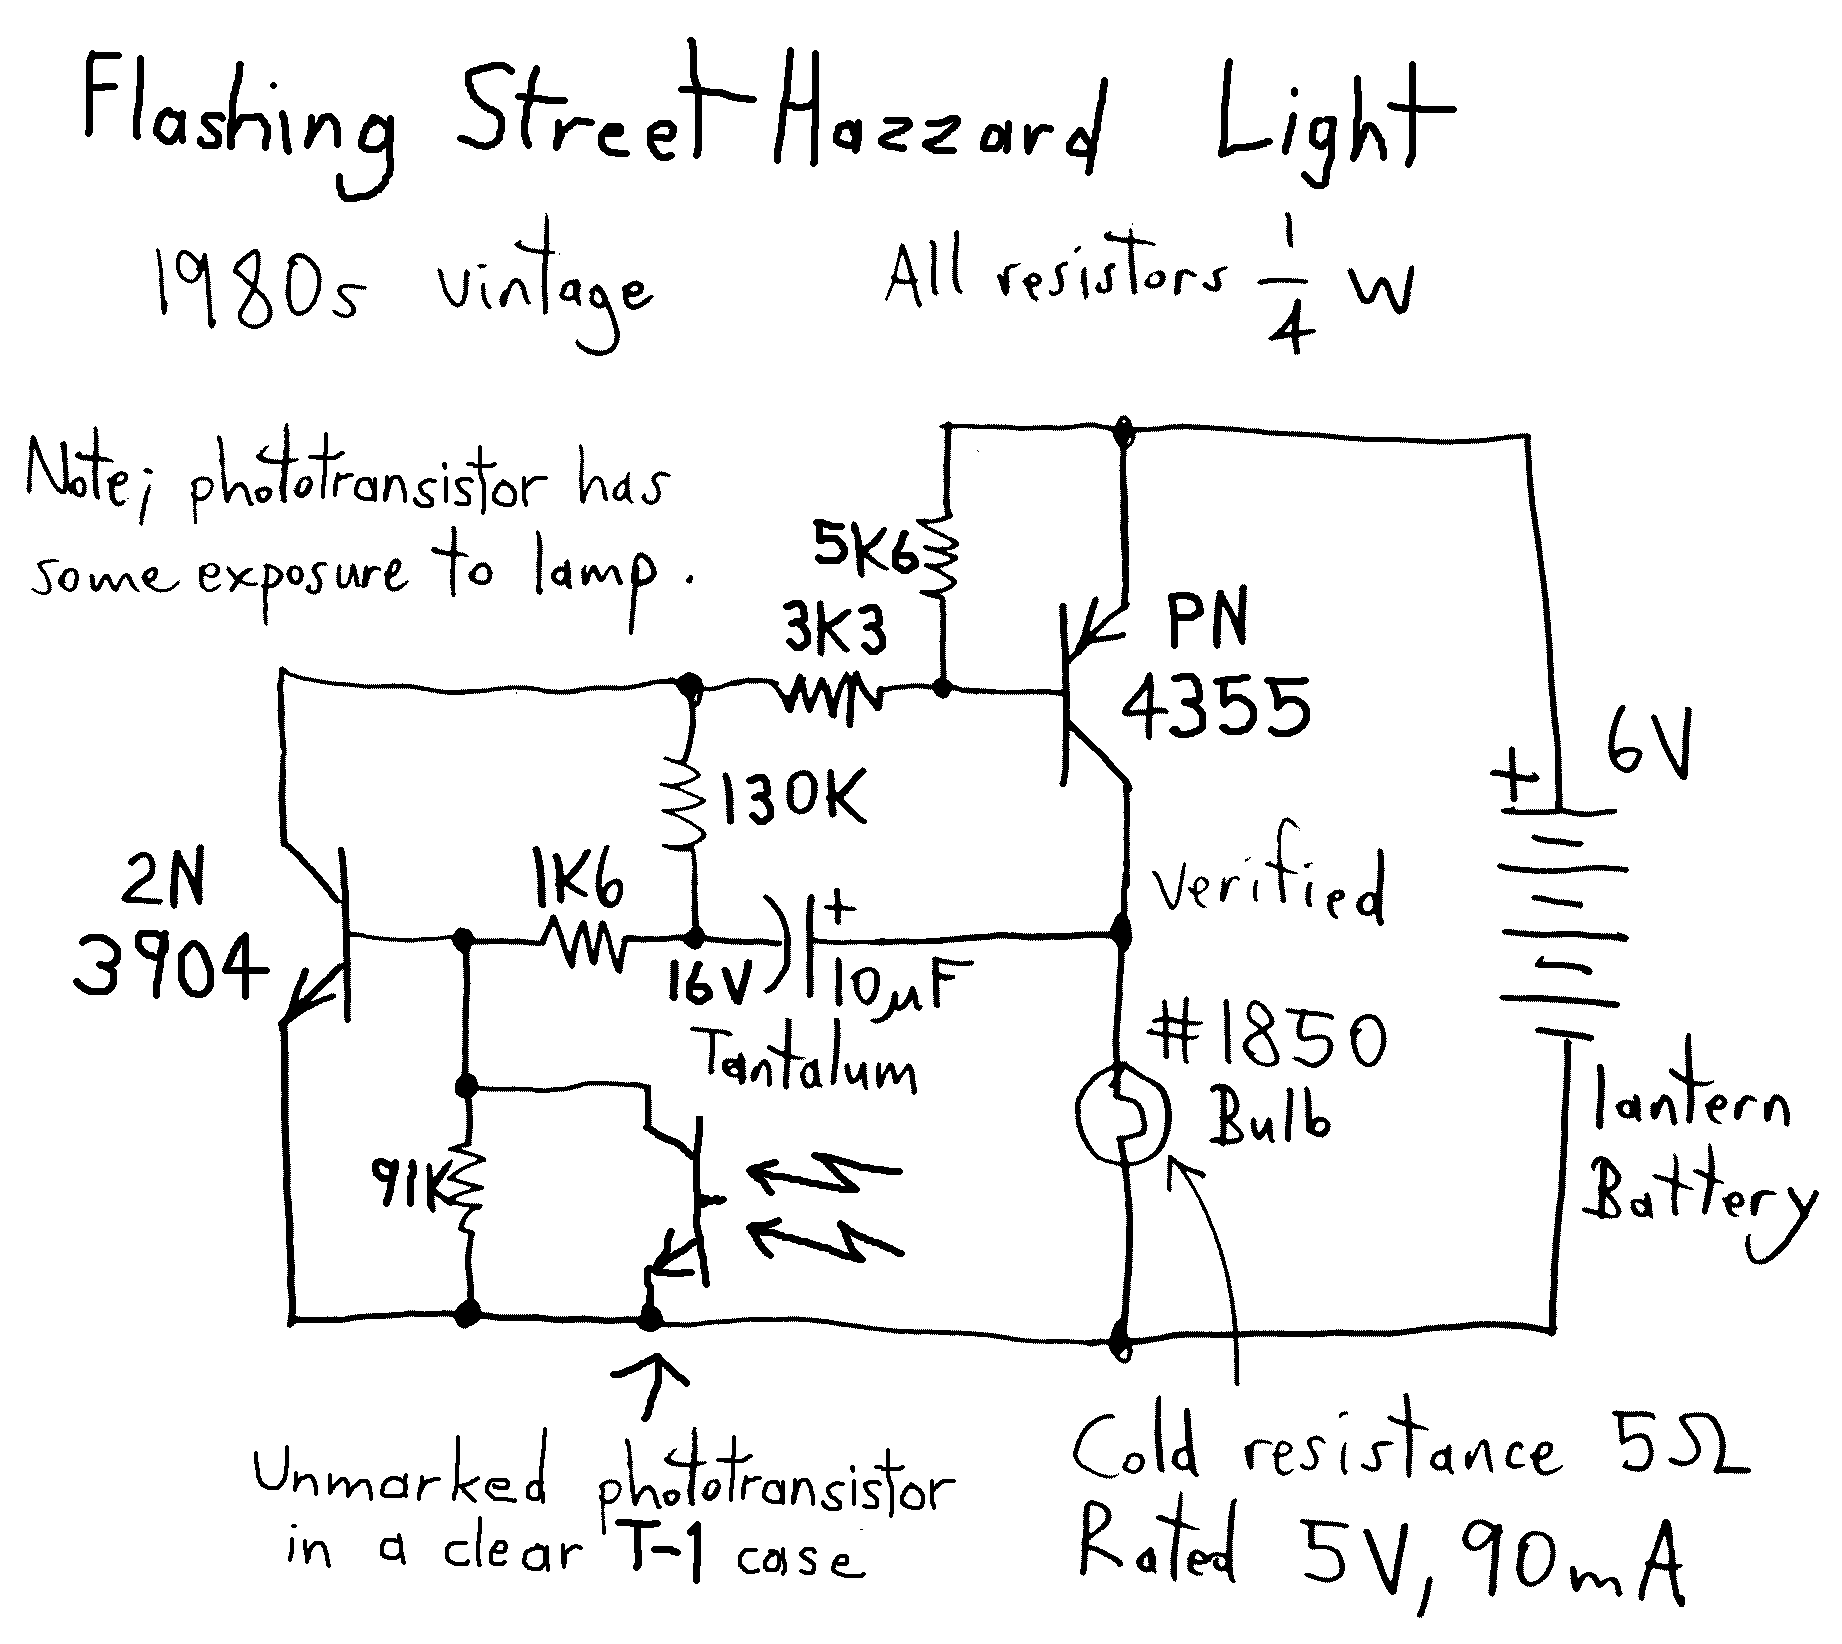 Flashing Street Hazzard Light
1980s vintage
All resistors 1/4 W
Note; phototransistor has
some exposure to lamp.
5K6
3K3
PN
4355
130K
6V
+
2N
3904
1K6
+
16V
10µF
Tantalum
Verified
#1850
Bulb
lantern
Battery
91K
Unmarked phototransistor
in a clear T-1 case
Cold resistance 5Ω
Rated 5V, 90mA